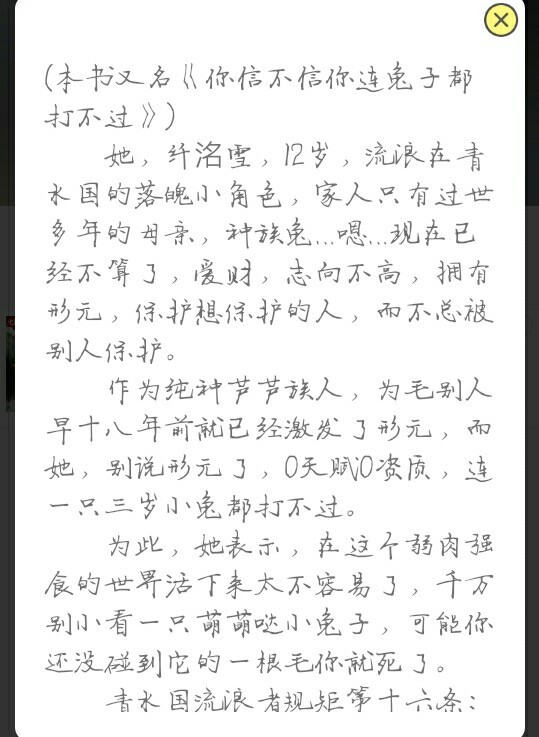 (本书又名《你信不信你连兔子都
打不过》)
她，纤洺雪，12岁，流浪在青
水国的落魄小角色，家人只有过世
多年的母亲，种族兔...嗯...现在已
经不算了，爱财，志向不高，拥有
形元，保护想保护的人，而不总被
别人保护。
作为纯种芦芦族人，为毛别人
早十八年前就已经激发了形元，而
她，别说形元了，0天赋0资质，连
一只三岁小兔都打不过。
为此，她表示，在这个弱肉强
食的世界活下来太不容易了，千万
别小看一只萌萌哒小兔子，可能你
还没碰到它的一根毛你就死了。
青水国流浪者规矩第十六条：